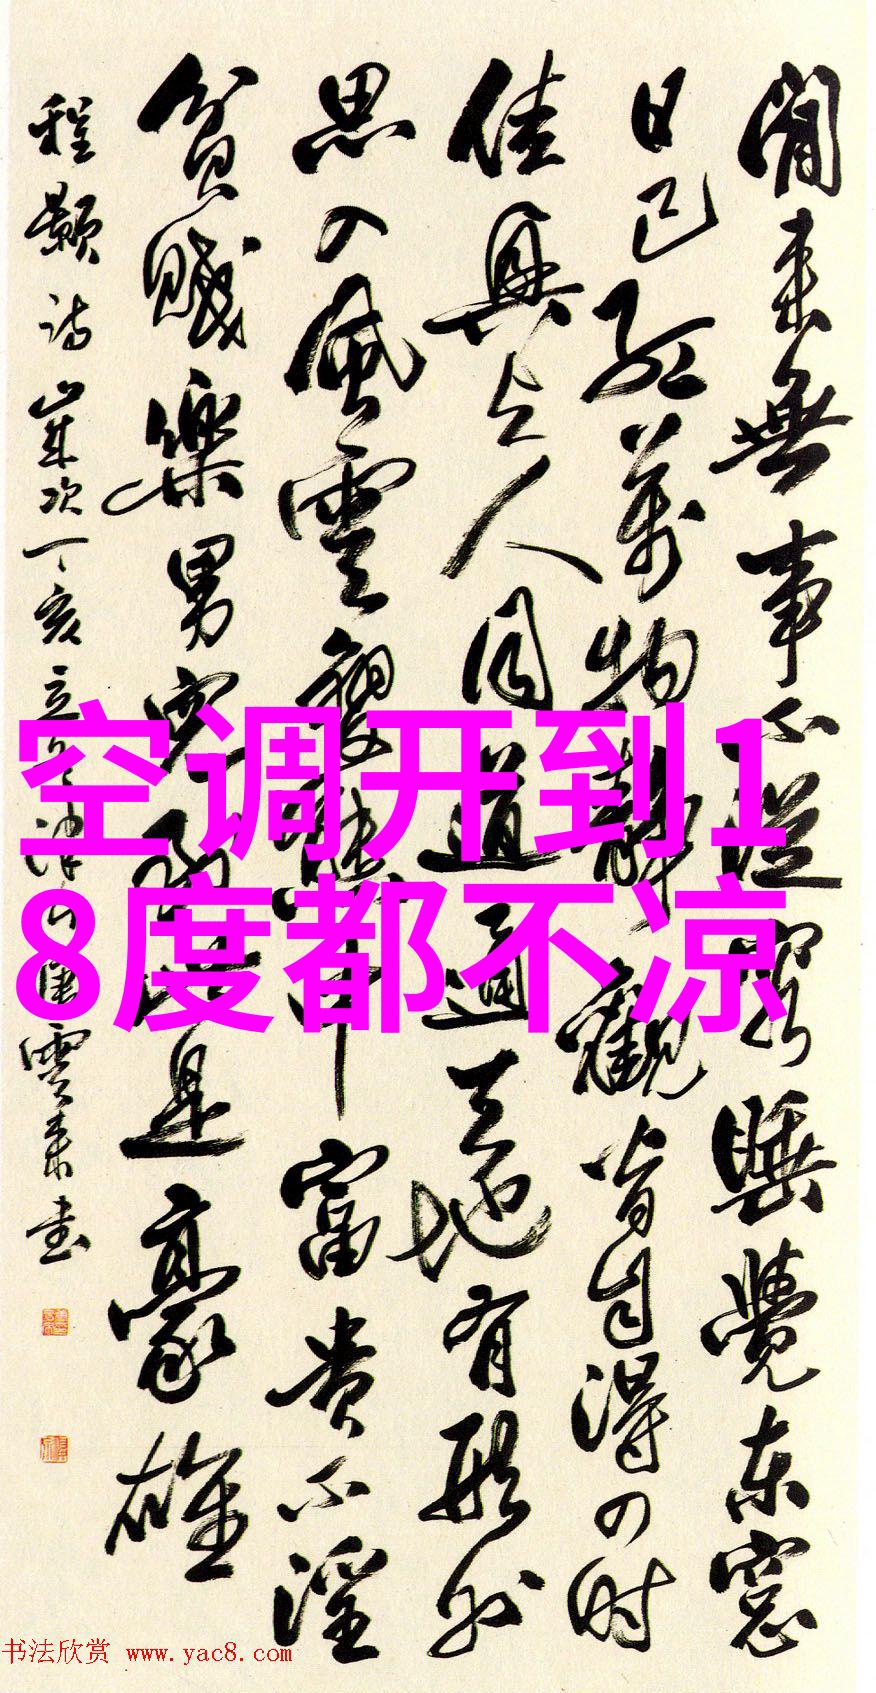 閒来無事不從容睡覺东窗
日已紅萬物靜觀皆自得四时
佳興与人同道通天地有形外
思入風雲變態中富貴不淫
貧賤樂男兒到此是豪雄
程颢诗歲次丁亥立冬津门雲来书
空调开到1
8度都不凉
书法欣赏 www.yac8.com